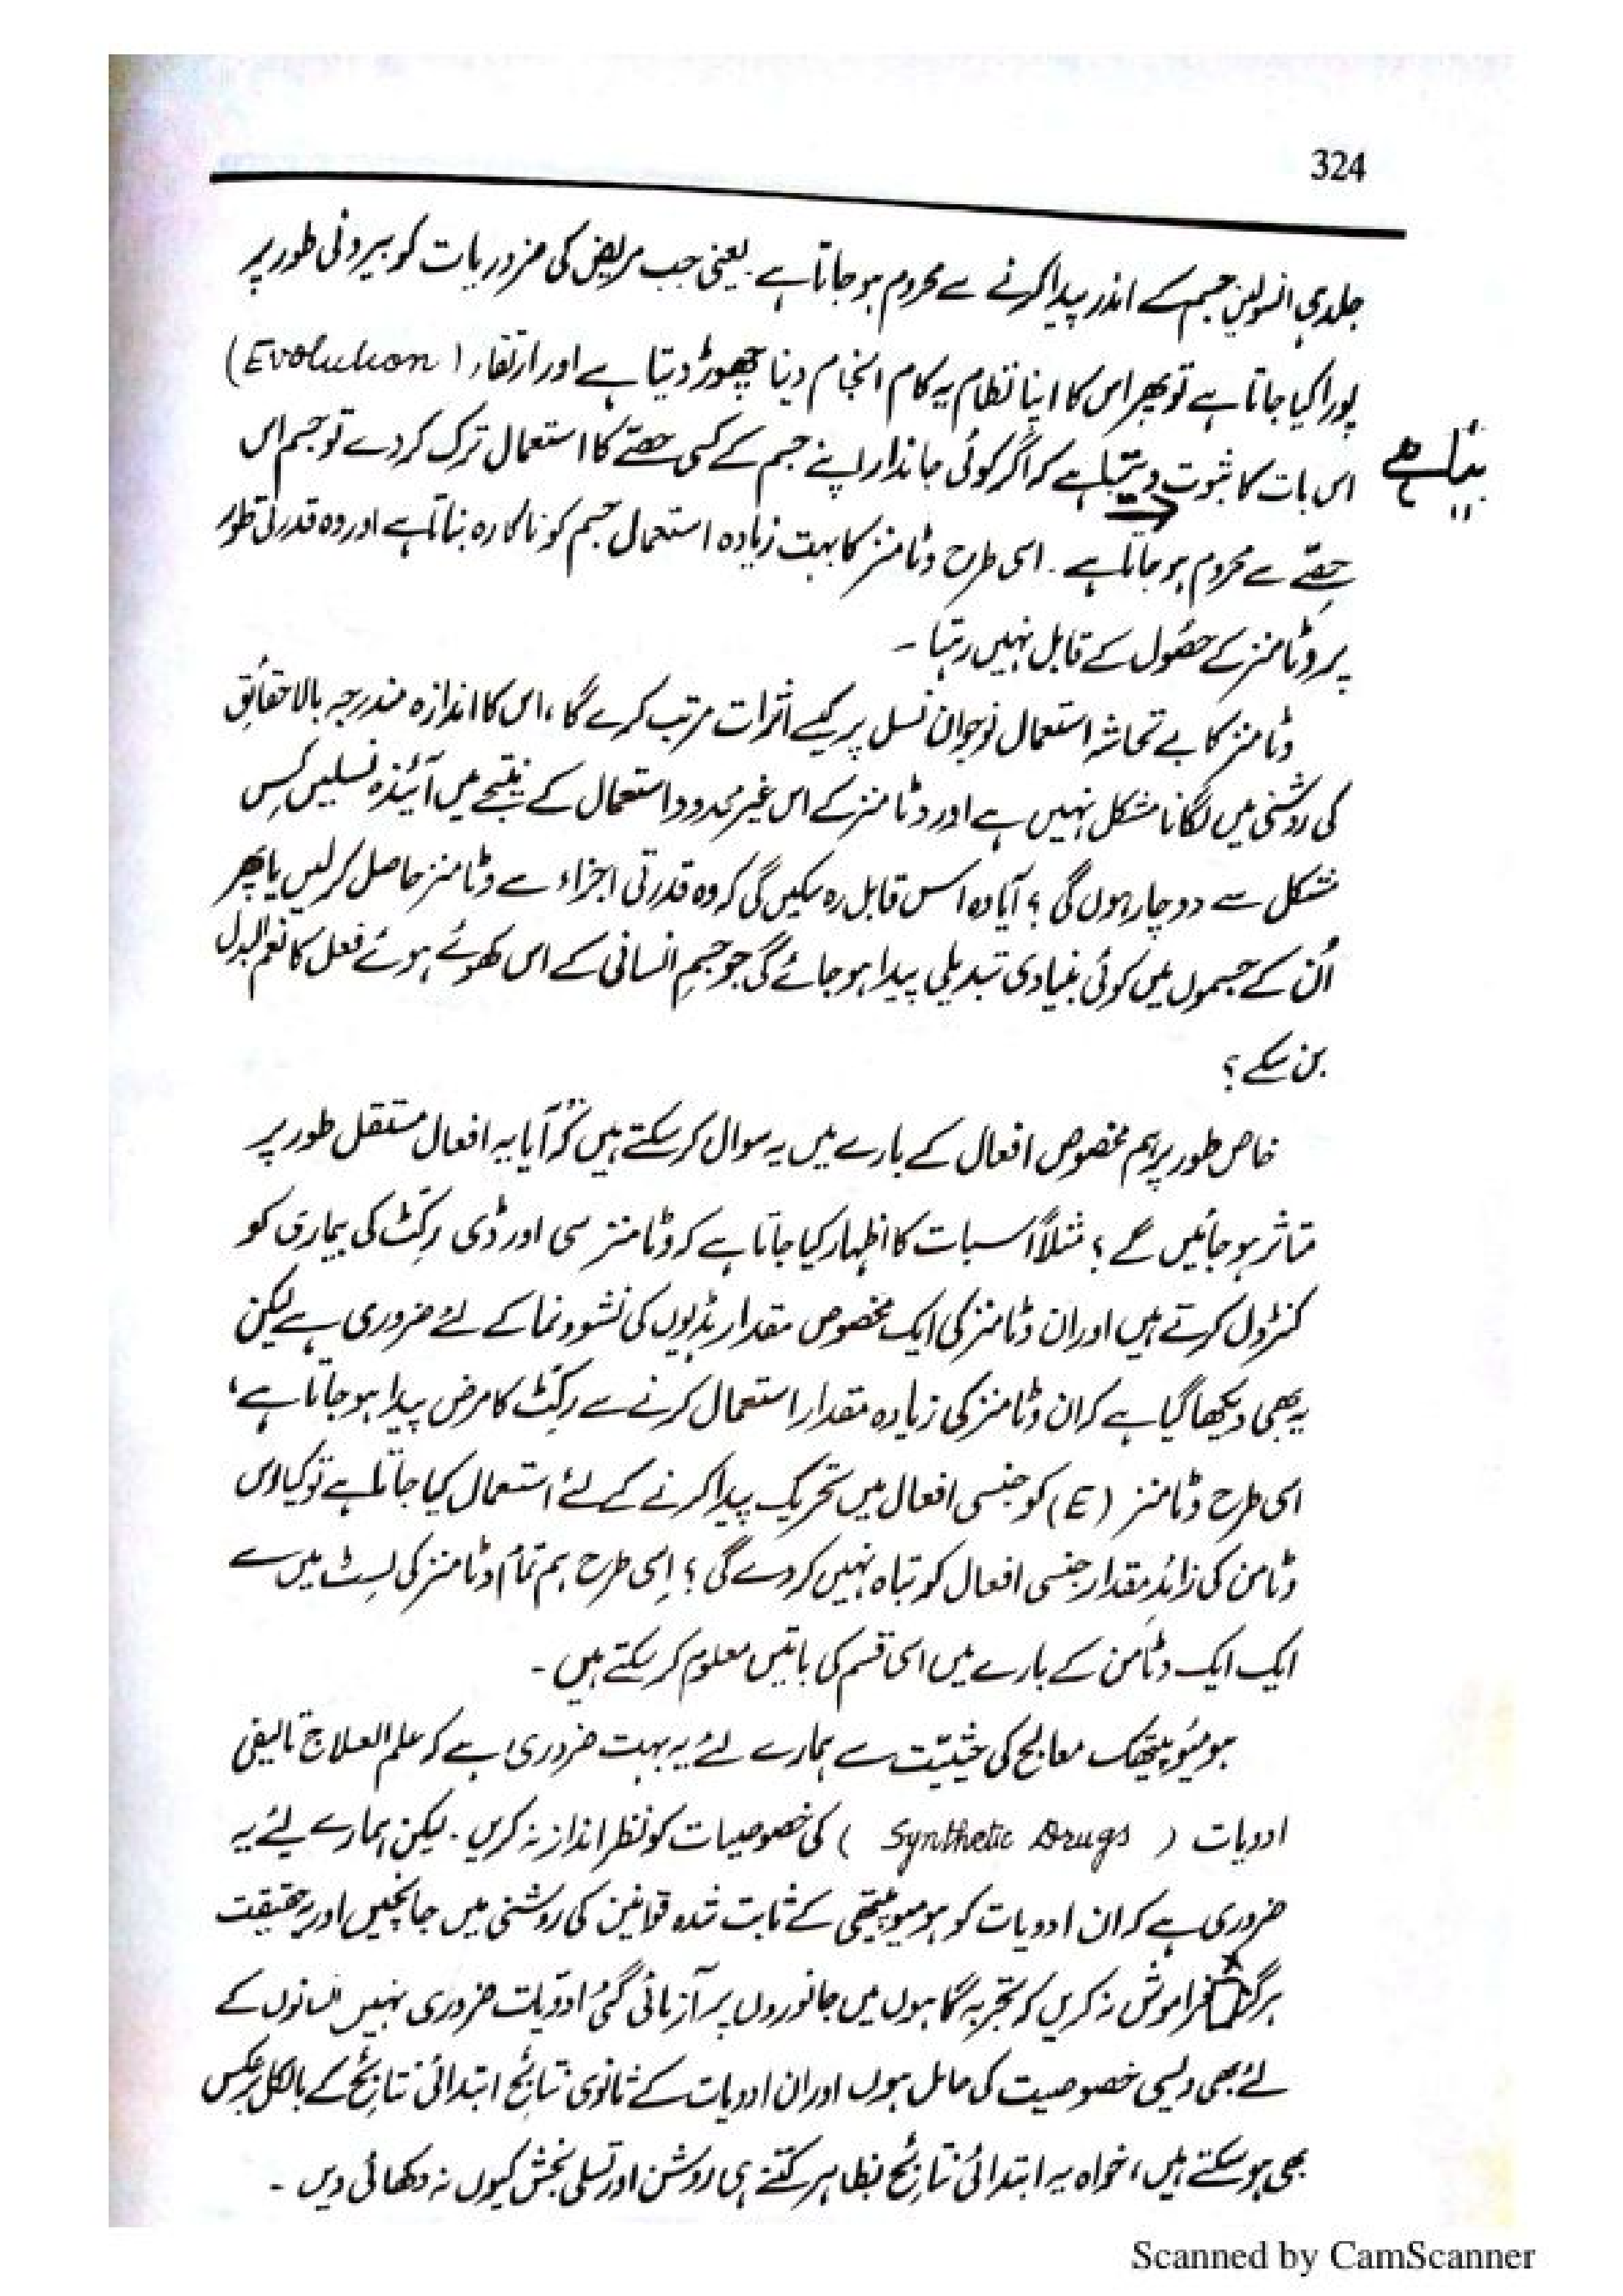 324
جلد ہی انسولین جسم کے اندر پیدا کرنے سے محروم ہو جاتا ہے۔ یعنی جب مریض کی ضروریات کو بیرونی طور پر
پورا کیا جاتا ہے تو پھر اس کا اپنا نظام یہ کام انجام دینا چھوڑ دیتا ہے اور ارتقاء (Evolution)
اس بات کا ثبوت دیتا ہے کہ اگر کوئی جاندار اپنے جسم کے کسی حصّے کا استعمال ترک کر دے تو جسم اس
حصّے سے محروم ہو جاتا ہے۔ اسی طرح وٹامنز کا بہت زیادہ استعمال جسم کو ناکارہ بناتا ہے اور وہ قدرتی طور
پر وٹامنز کے حصُول کے قابل نہیں رہتا۔
وٹامنز کا بے تحاشہ استعمال نوجوان نسل پر کیسے اثرات مرتب کرے گا، اس کا اندازہ مندرجہ بالا حقائق
کی روشنی میں لگانا مشکل نہیں ہے اور وٹامنز کے اس غیر محدود استعمال کے نتیجے میں آئندہ نسلیں کِس
مشکل سے دوچار ہوں گی ؟ آیا وہ اس قابل رہ سکیں گی کہ وہ قدرتی اجزاء سے وٹامنز حاصل کر لیں یا پھر
اُن کے جسموں میں کوئی بنیادی تبدیلی پیدا ہو جائے گی جو جسمِ انسانی کے اس کھوئے ہوئے فعل کا نعم البدل
بن سکے ؟
خاص طور پر ہم مخصوص افعال کے بارے میں یہ سوال کر سکتے ہیں کہ آیا یہ افعال مستقل طور پر
متاثر ہو جائیں گے ؟ مثلاً اس بات کا اظہار کیا جاتا ہے کہ وٹامنز سی اور ڈی رِکٹ کی بیماری کو
کنٹرول کرتے ہیں اور ان وٹامنز کی ایک مخصوص مقدار ہڈیوں کی نشوونما کے لئے ضروری ہے لیکن
یہ بھی دیکھا گیا ہے کہ ان وٹامنز کی زیادہ مقدار استعمال کرنے سے رِکٹ کا مرض پیدا ہو جاتا ہے،
اسی طرح وٹامنز (E) کو جنسی افعال میں تحریک پیدا کرنے کے لئے استعمال کیا جاتا ہے تو کیا اس
وٹامن کی زائد مقدار جنسی افعال کو تباہ نہیں کر دے گی ؟ اِسی طرح ہم تمام وٹامنز کی لِسٹ میں سے
ایک ایک وٹامن کے بارے میں اسی قسم کی باتیں معلوم کر سکتے ہیں۔
ہومیوپیتھک معالج کی حیثیت سے ہمارے لئے یہ بہت ضروری ہے کہ علم العلاج تالیفی
ادویات ( Synthetic Drugs ) کی خصوصیات کو نظر انداز نہ کریں۔ لیکن ہمارے لئے یہ
ضروری ہے کہ ان ادویات کو ہومیوپیتھی کے ثابت شدہ قوانین کی روشنی میں جانچیں اور یہ حقیقت
ہرگز فراموش نہ کریں کہ تجربہ گاہوں میں جانوروں پر آزمائی گئی ادویات ضروری نہیں انسانوں کے
لئے بھی ویسی خصوصیت کی حامل ہوں اور ان ادویات کے ثانوی نتائج ابتدائی نتائج کے بالکل برعکس
بھی ہو سکتے ہیں، خواہ یہ ابتدائی نتائج بظاہر کتنے ہی روشن اور تسلی بخش کیوں نہ دکھائی دیں۔
Scanned by CamScanner